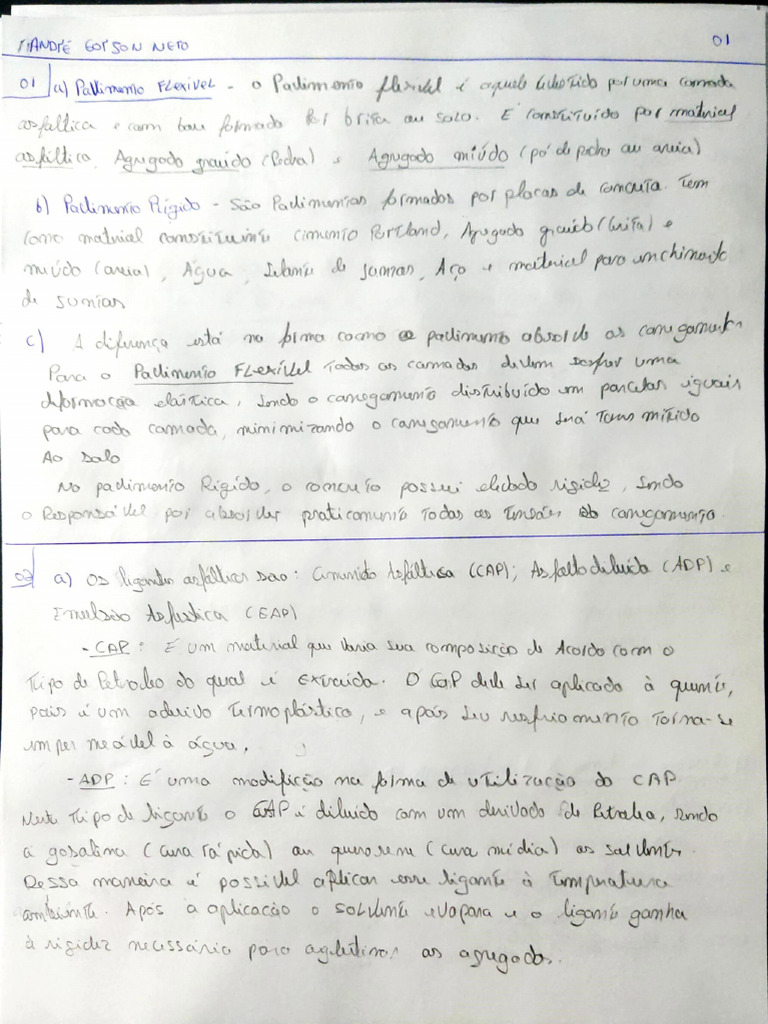 ANDRÉ GERSON NETO 01
01 a) Pavimento FLEXÍVEL - o Pavimento flexível é aquele revestido por uma camada
asfáltica e com base formada por brita ou solo. É constituído por material
asfáltico, Agregado graúdo (Pedra) e Agregado miúdo (pó de pedra ou areia)
b) Pavimento Rígido - São Pavimentos formados por placas de concreto. Tem
como material constituinte cimento Portland, Agregado graúdo (brita) e
miúdo (areia), Água, Selante de juntas, Aço e material para enchimento
de juntas
c) A diferença está na forma como o pavimento absorve os carregamentos
Para o Pavimento FLEXÍVEL Todas as camadas devem sofrer uma
deformação elástica, sendo o carregamento distribuído em parcelas iguais
para cada camada, minimizando o carregamento que será transmitido
Ao solo
No pavimento Rígido, o concreto possui elevada rigidez, sendo
o Responsável por absorver praticamente todas as tensões do carregamento.
02 a) Os ligantes asfálticos são: Cimento Asfáltico (CAP); Asfalto diluído (ADP) e
Emulsão Asfáltica (EAP)
- CAP: É um material que varia sua composição de Acordo com o
Tipo de Petróleo do qual é extraído. O CAP deve ser aplicado à quente,
pois é um adesivo termoplástico, e após seu resfriamento torna-se
impermeável à água.
- ADP: É uma modificação na forma de utilização do CAP
Neste tipo de ligante o CAP é diluído com um derivado de Petróleo, sendo
a gasolina (cura rápida) ou querosene (cura média) os solventes.
Dessa maneira é possível aplicar esse ligante à temperatura
ambiente. Após a aplicação o solvente evapora e o ligante ganha
à rigidez necessária para aglutinar os agregados.